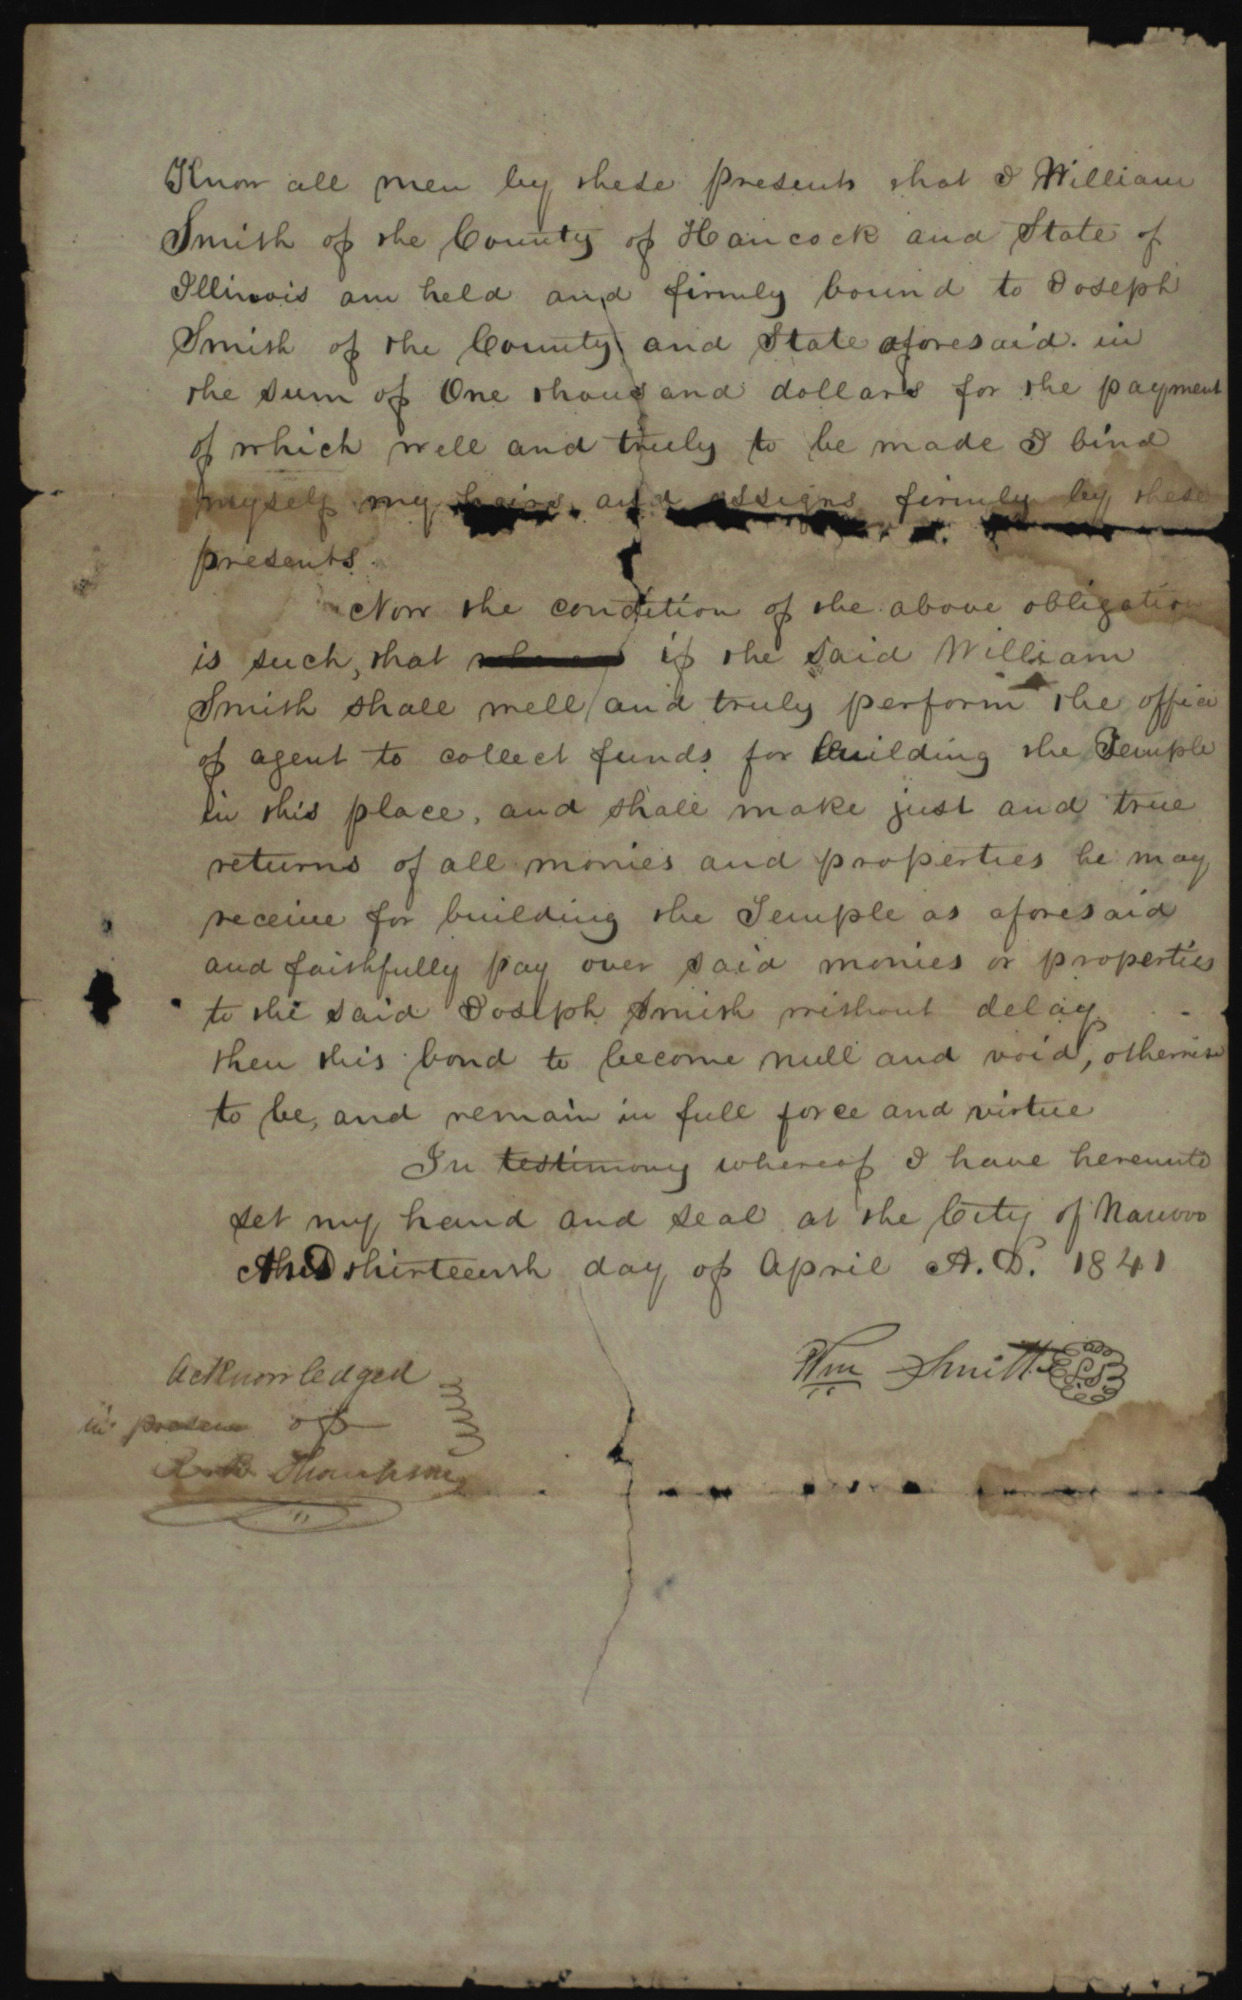 Know all men by these presents that I William
Smith of the County of Hancock and State of
Illinois am held and firmly bound to Joseph
Smith of the County and State aforesaid. in
the sum of One thousand dollars for the payment
of which well and truly to be made I bind
myself my heirs and assigns firmly by these
presents.
Now the condition of the above obligation
is such, that if the said William
Smith shall well and truly perform the office
of agent to collect funds for building the Temple
in this place, and shall make just and true
returns of all monies and properties he may
receive for building the Temple as aforesaid
and faithfully pay over said monies or properties
to the said Joseph Smith without delay
then this bond to become null and void, otherwise
to be, and remain in full force and virtue
In testimony whereof I have hereunto
set my hand and seal at the City of Nauvoo
this thirteenth day of April A.D. 1841
Wm Smith L.S.
Acknowledged
in presence of
R. B. Thompson